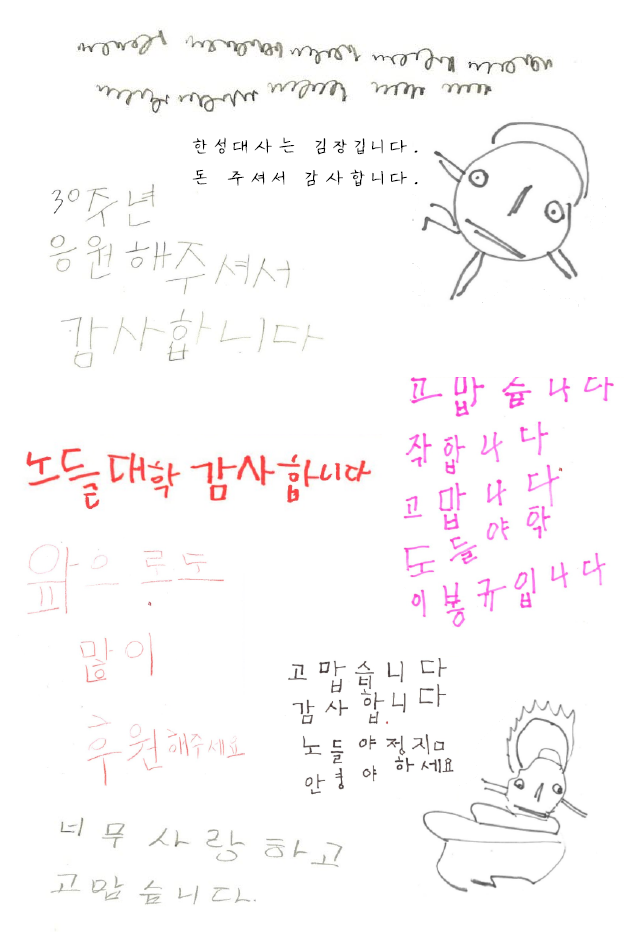 한성대사는 김장깁니다.
돈 주셔서 감사합니다.
30주년
응원해주셔서
감사합니다
고맙습니다
작합니다
고맙니다
노들야학
이봉규입니다
노들대학 감사합니다
앞으로도
많이
후원해주세요
고맙습니다
감사합니다.
노들야정지ㅁ
안녕야하세요
너무사랑하고
고맙습니다.